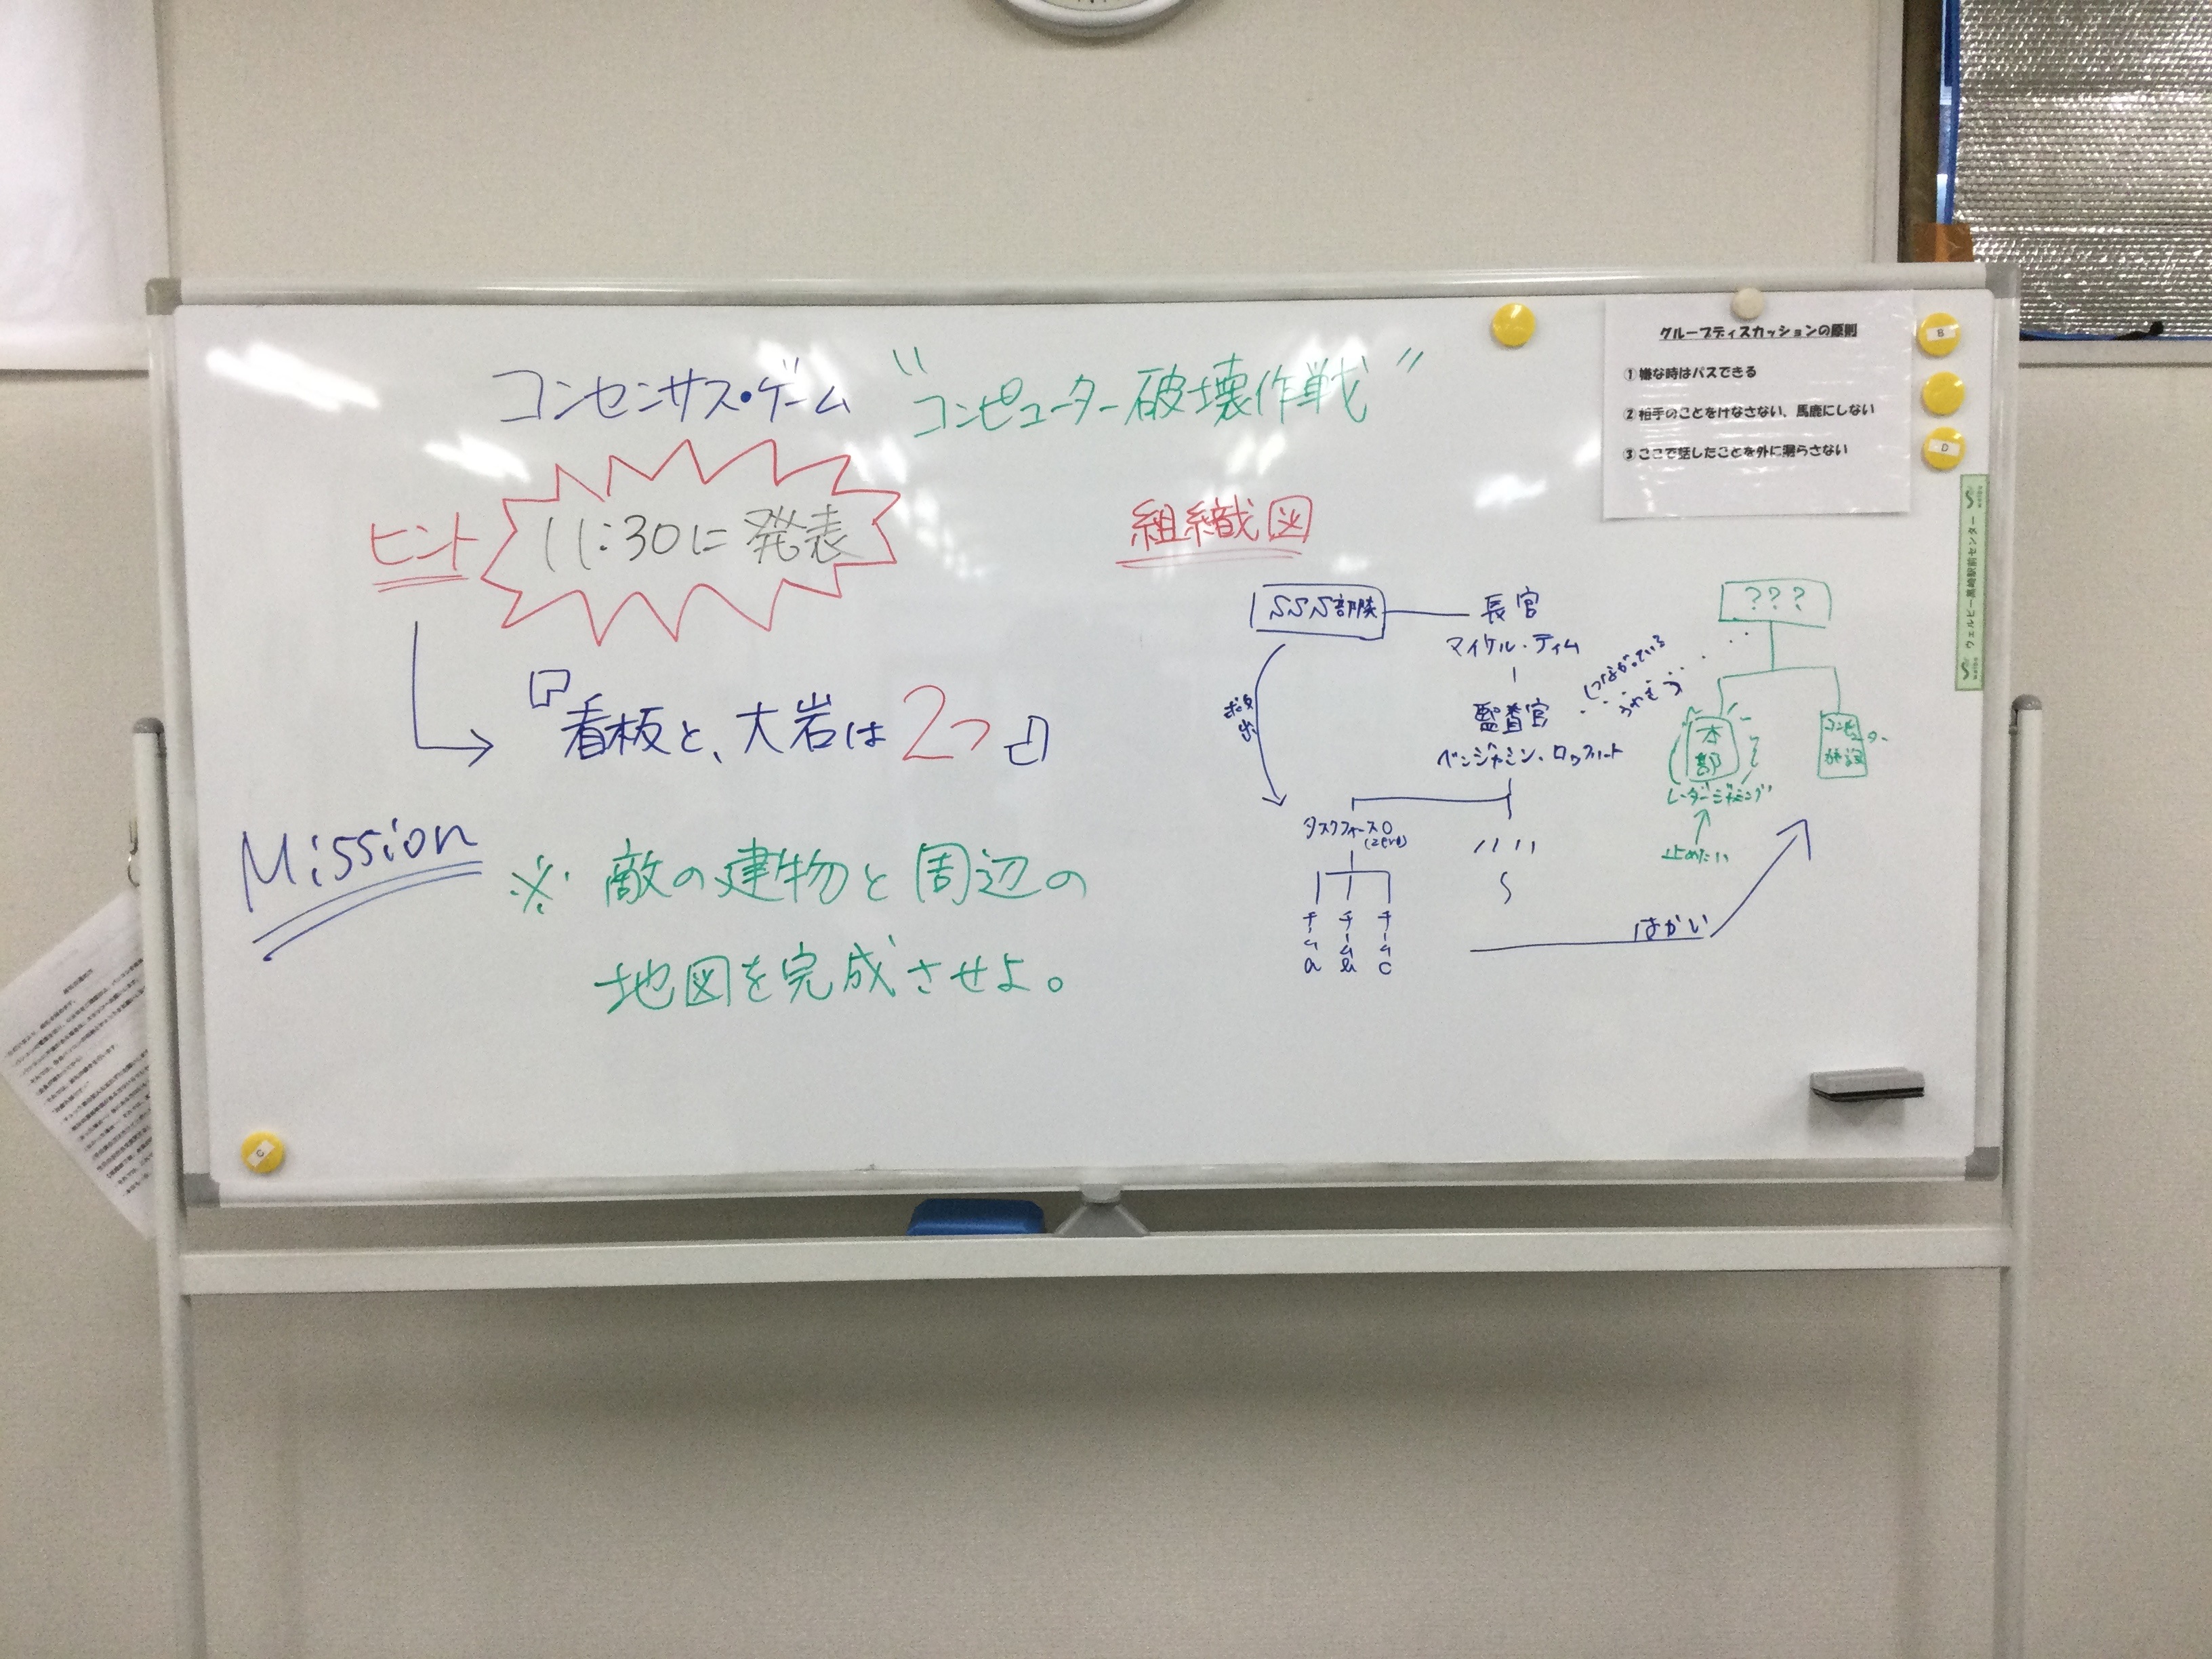 コンセンサス・ゲーム "コンピューター破壊作戦"
ヒント 11:30に発表
『看板と、大岩は2つ』
Mission
※ 敵の建物と周辺の
地図を完成させよ。
組織図
SSS部隊
長官
マイケル・ティム
監督官
ベンジャミン・
タスクフォース0
(zero)
チームa
チームb
チームc
???
つながっている
うわさ
本部
レーダージャミング
止めたい
コンピューター
施設
はかい
グループディスカッションの原則
①嫌な時はパスできる
②相手のことをけなさない、馬鹿にしない
③ここで話したことを外に漏らさない
B
D
C
ウェルビー黒崎駅前センター